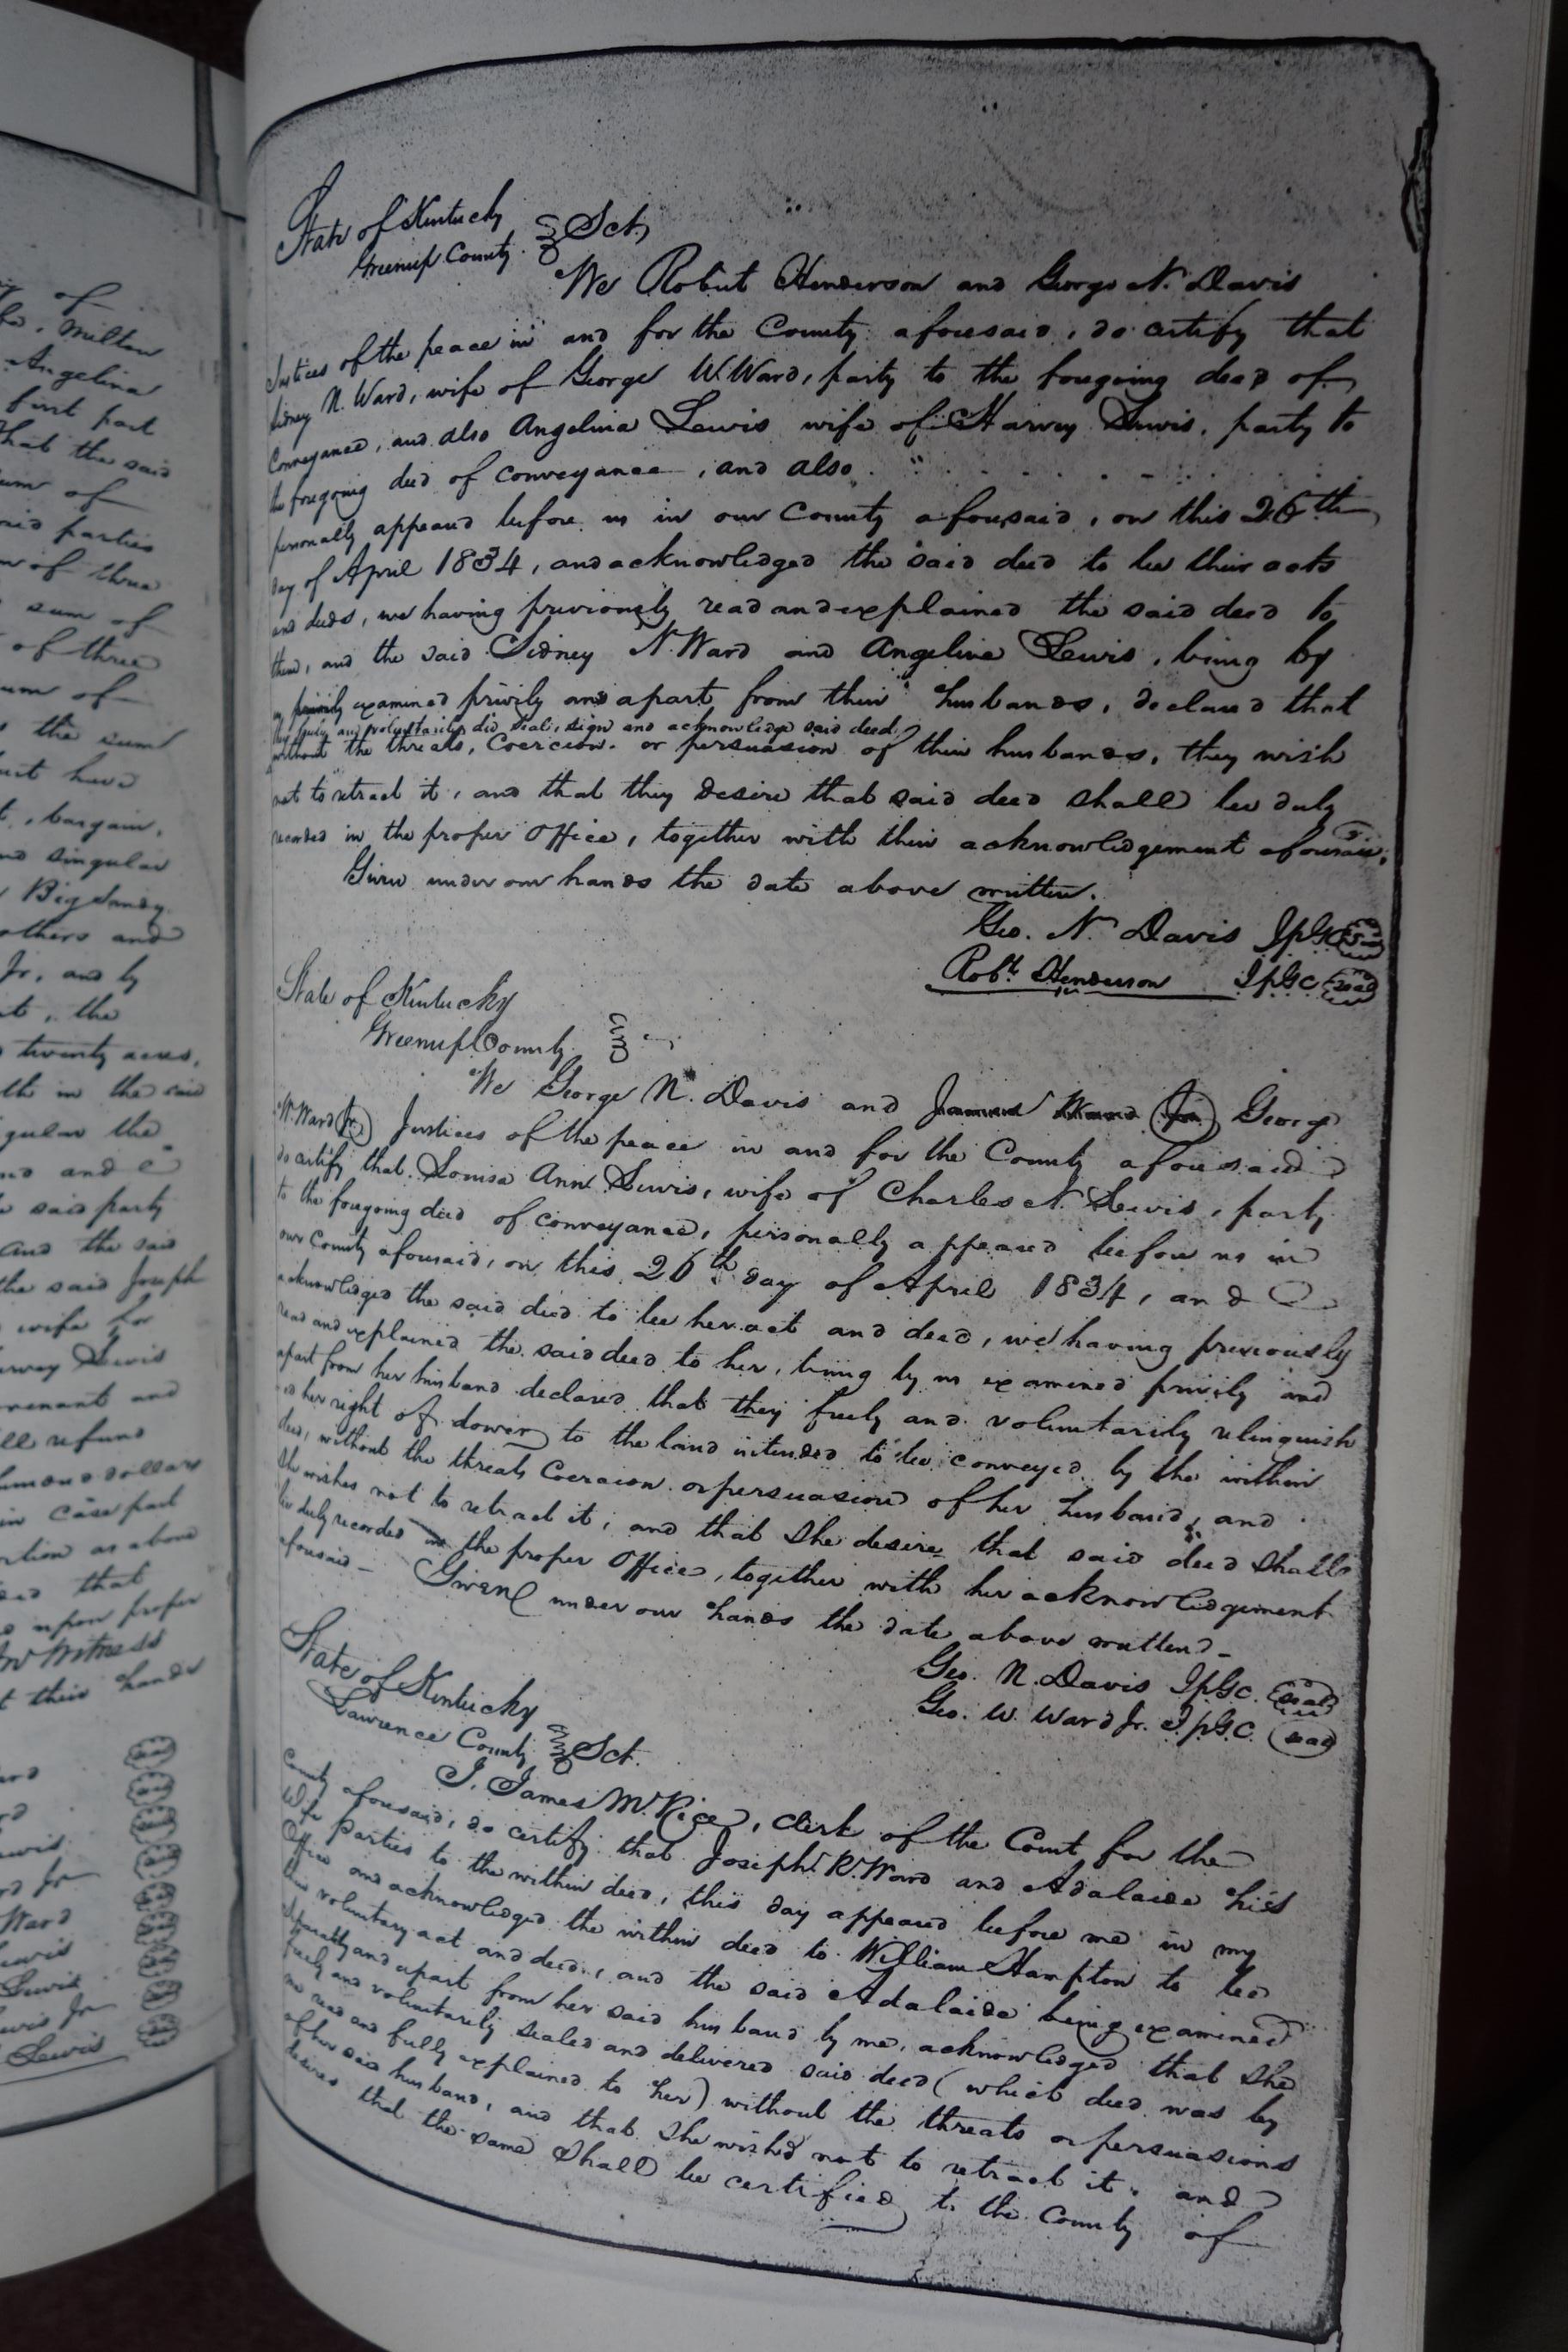 of
Milton
Angelina
first part
that the said
sum of
said parties
of three
sum of
of three
sum of
the sum
bargain,
and singular
Big Sandy
others and
Jr, and by
the
twenty acres,
in the said
the
and
said party
and the said
the said Joseph
wife for
Harvey Lewis
covenant and
refund
thousand dollars
in case part
portion as above
that
upon proper
In Witness
their hands
Jr
Ward
Lewis
Lewis
Lewis Jr
Lewis
State of Kentucky
Greenup County Sct,
We Robert Henderson and George N. Davis
Justices of the peace in and for the County aforesaid, do certify that
Sidney N. Ward, wife of George W. Ward, party to the foregoing deed of
Conveyance, and also Angelina Lewis wife of Harvey Lewis, party to
the foregoing deed of conveyance, and also
personally appeared before us in our County aforesaid, on this 26th
day of April 1834, and acknowledged the said deed to be their acts
and deeds, we having previously read and explained the said deed to
them, and the said Sidney N. Ward and Angelina Lewis, being by
us examined privily and apart from their husbands, declared that
they freely and voluntarily did seal, sign and acknowledge said deed
without the threats, Coercion or persuasion of their husbands, they wish
not to retract it, and that they desire that said deed shall be duly
recorded in the proper office, together with their acknowledgement aforesaid,
Given under our hands the date above written.
Geo. N. Davis JPGC Seal
Robt. Henderson JPGC Seal
State of Kentucky
Greenup County
We George N. Davis and James Ward Jr George
W. Ward Jr. Justices of the peace in and for the County aforesaid
do certify that Louisa Ann Lewis, wife of Charles N. Lewis, party
to the foregoing deed of conveyance, personally appeared before us in
our County aforesaid, on this 26th day of April 1834, and
acknowledged the said deed to be her act and deed, we having previously
read and explained the said deed to her, being by us examined privily and
apart from her husband declared that they freely and voluntarily relinquish
her right of dower to the land intended to be conveyed by the within
deed, without the threats Coercion or persuasion of her husband, and
She wishes not to retract it, and that She desire that said deed shall
be duly recorded in the proper Office, together with her acknowledgement
aforesaid - Given under our hands the date above written -
Geo. N. Davis JPGC. Seal
Geo. W. Ward Jr. JPGC. Seal
State of Kentucky
Lawrence County Sct.
I, James M. Rice, clerk of the Court for the
County aforesaid, do certify that Joseph R. Ward and Adalaide his
Wife parties to the within deed, this day appeared before me in my
Office and acknowledged the within deed to William Hampton to be
their voluntary act and deed, and the said Adalaide being examined
Separately and apart from her said husband by me, acknowledged that She
freely and voluntarily sealed and delivered said deed (which deed was by
me read and fully explained to her) without the threats or persuasions
of her said husband, and that She wished not to retract it, and
desires that the same Shall be certified to the County of